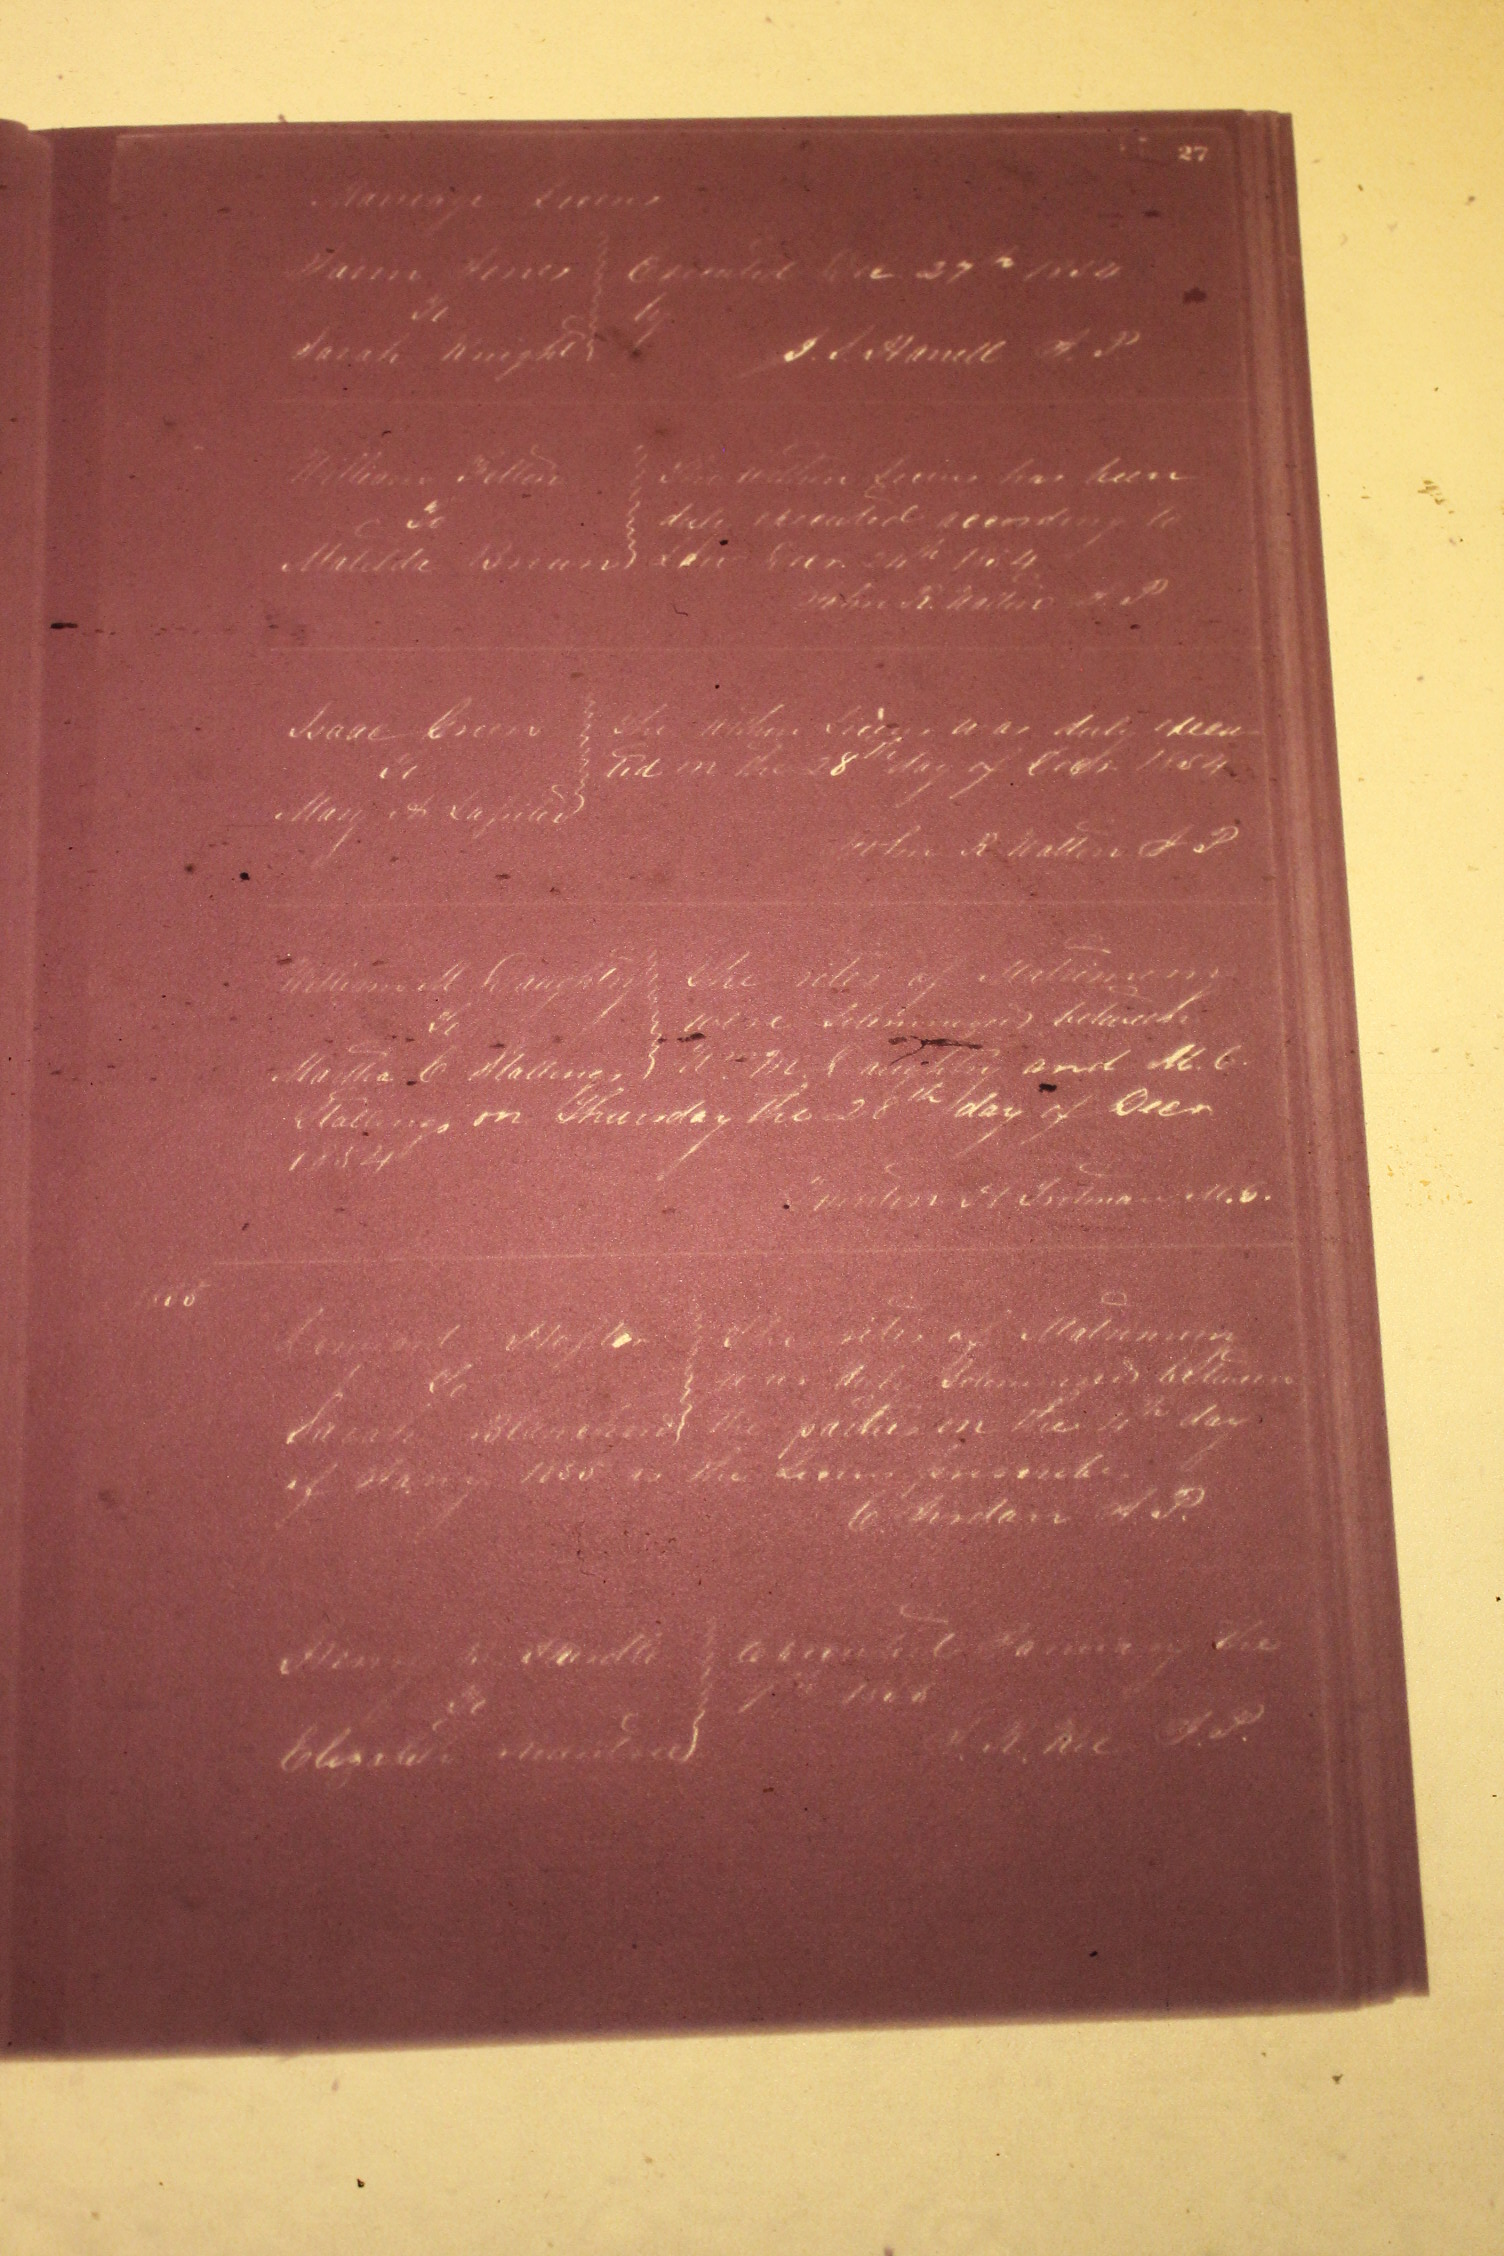 27
Marriage License
Jones } Executed Dec 27th 1854
To } by
Sarah Knight } J. S. Harrell J. P
William Felton } The within License has been
To } duly executed according to
Matilda Brown } Law Decr 24th 1854
John R. Walton J. P
Isaac Green } The within License was duly execu
To } ted on the 28th day of Decr 1854
Mary A Lassiter }
John R Walton J P
William M Daughtry } The rites of Matrimony
To } were Solemnized between
Martha C Stallings } Wm M. Daughtry and M. C.
Stallings on Thursday the 28th day of Decr
1854
Quinton H Trotman M. G.
1855
Hofler } The rites of Matrimony
To } was duly Solemnized between
Sarah Blanchard } the parties on the 4th day
of Jany 1855 as the License
C. Jordan J. P.
Henry } Executed January the
To } 1855
Elizabeth }
R. J. P.